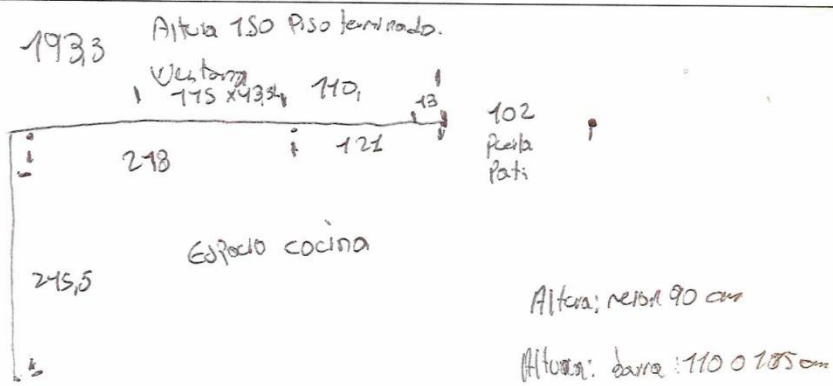 193,3
Altura 150 Piso terminado.
Ventana
115 x 43,5 110,
13
102
Puerta
Pati
218
121
Espacio cocina
245,5
Altura: meson 90 cm
Altura: barra: 110 o 105 cm